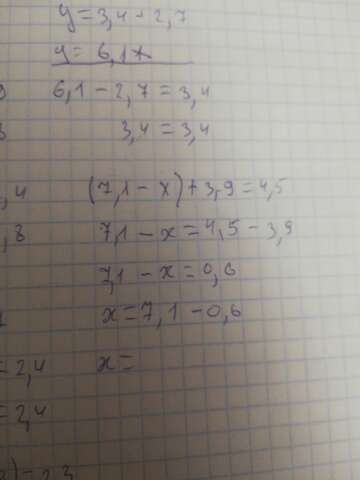 y=3,4+2,7
y=6,1
6,1-2,7=3,4
3,4=3,4
,4
(7,1-x)+3,9=4,5
,8
7,1-x=4,5-3,9
7,1-x=0,6
x=7,1-0,6
=2,4
x=
=2,4